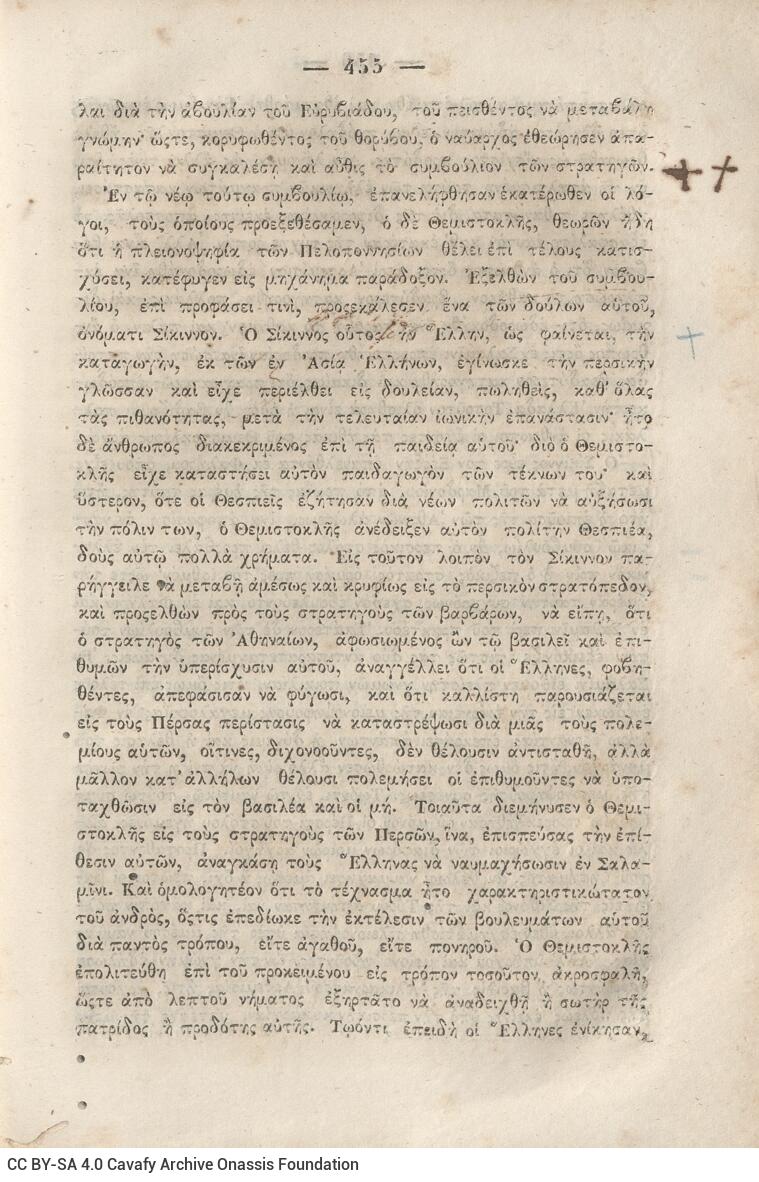 — 455 —
λαι διὰ τὴν ἀβουλίαν τοῦ Εὐρυβιάδου, τοῦ πεισθέντος νὰ μεταβάλῃ
γνώμην· ὥςτε, κορυφωθέντος τοῦ θορύβου, ὁ ναύαρχος ἐθεώρησεν ἀπα-
ραίτητον νὰ συγκαλέσῃ καὶ αὖθις τὸ συμβούλιον τῶν στρατηγῶν.
Ἐν τῷ νέῳ τούτῳ συμβουλίῳ, ἐπανελήφθησαν ἑκατέρωθεν οἱ λό-
γοι, τοὺς ὁποίους προεξεθέσαμεν, ὁ δὲ Θεμιστοκλῆς, θεωρῶν ἤδη
ὅτι ἡ πλειονοψηφία τῶν Πελοποννησίων θέλει ἐπὶ τέλους κατισ-
χύσει, κατέφυγεν εἰς μηχάνημα παράδοξον. Ἐξελθὼν τοῦ συμβου-
λίου, ἐπὶ προφάσει τινὶ, προςεκάλεσεν ἕνα τῶν δούλων αὑτοῦ,
ὀνόματι Σίκιννον. Ὁ Σίκιννος οὗτος ἦν Ἕλλην, ὡς φαίνεται, τὴν
καταγωγὴν, ἐκ τῶν ἐν Ἀσίᾳ Ἑλλήνων, ἐγίνωσκε τὴν περσικὴν
γλῶσσαν καὶ εἶχε περιέλθει εἰς δουλείαν, πωληθεὶς, καθ' ὅλας
τὰς πιθανότητας, μετὰ τὴν τελευταίαν ἰωνικὴν ἐπανάστασιν· ἦτο
δὲ ἄνθρωπος διακεκριμένος ἐπὶ τῇ παιδείᾳ αὑτοῦ· διὸ ὁ Θεμιστο-
κλῆς εἶχε καταστήσει αὐτὸν παιδαγωγὸν τῶν τέκνων του· καὶ
ὕστερον, ὅτε οἱ Θεσπιεῖς ἐζήτησαν διὰ νέων πολιτῶν νὰ αὐξήσωσι
τὴν πόλιν των, ὁ Θεμιστοκλῆς ἀνέδειξεν αὐτὸν πολίτην Θεσπιέα,
δοὺς αὐτῷ πολλὰ χρήματα. Εἰς τοῦτον λοιπὸν τὸν Σίκιννον πα-
ρήγγειλε νὰ μεταβῇ ἀμέσως καὶ κρυφίως εἰς τὸ περσικὸν στρατόπεδον,
καὶ προςελθὼν πρὸς τοὺς στρατηγοὺς τῶν βαρβάρων, νὰ εἴπῃ, ὅτι
ὁ στρατηγὸς τῶν Ἀθηναίων, ἀφωσιωμένος ὢν τῷ βασιλεῖ καὶ ἐπι-
θυμῶν τὴν ὑπερίσχυσιν αὐτοῦ, ἀναγγέλλει ὅτι οἱ Ἕλληνες, φοβη-
θέντες, ἀπεφάσισαν νὰ φύγωσι, καὶ ὅτι καλλίστη παρουσιάζεται
εἰς τοὺς Πέρσας περίστασις νὰ καταστρέψωσι διὰ μιᾶς τοὺς πολε-
μίους αὑτῶν, οἵτινες, διχονοοῦντες, δὲν θέλουσιν ἀντισταθῆ, ἀλλὰ
μᾶλλον κατ' ἀλλήλων θέλουσι πολεμήσει οἱ ἐπιθυμοῦντες νὰ ὑπο-
ταχθῶσιν εἰς τὸν βασιλέα καὶ οἱ μή. Τοιαῦτα διεμήνυσεν ὁ Θεμι-
στοκλῆς εἰς τοὺς στρατηγοὺς τῶν Περσῶν, ἵνα, ἐπισπεύσας τὴν ἐπί-
θεσιν αὐτῶν, ἀναγκάσῃ τοὺς Ἕλληνας νὰ ναυμαχήσωσιν ἐν Σαλα-
μῖνι. Καὶ ὁμολογητέον ὅτι τὸ τέχνασμα ἦτο χαρακτηριστικώτατον
τοῦ ἀνδρὸς, ὅςτις ἐπεδίωκε τὴν ἐκτέλεσιν τῶν βουλευμάτων αὑτοῦ
διὰ παντὸς τρόπου, εἴτε ἀγαθοῦ, εἴτε πονηροῦ. Ὁ Θεμιστοκλῆς
ἐπολιτεύθη ἐπὶ τοῦ προκειμένου εἰς τρόπον τοσοῦτον ἀκροσφαλῆ,
ὥςτε ἀπὸ λεπτοῦ νήματος ἐξηρτᾶτο νὰ ἀναδειχθῇ ἢ σωτὴρ τῆς
πατρίδος ἢ προδότης αὐτῆς. Τῳόντι ἐπειδὴ οἱ Ἕλληνες ἐνίκησαν,
CC BY-SA 4.0 Cavafy Archive Onassis Foundation